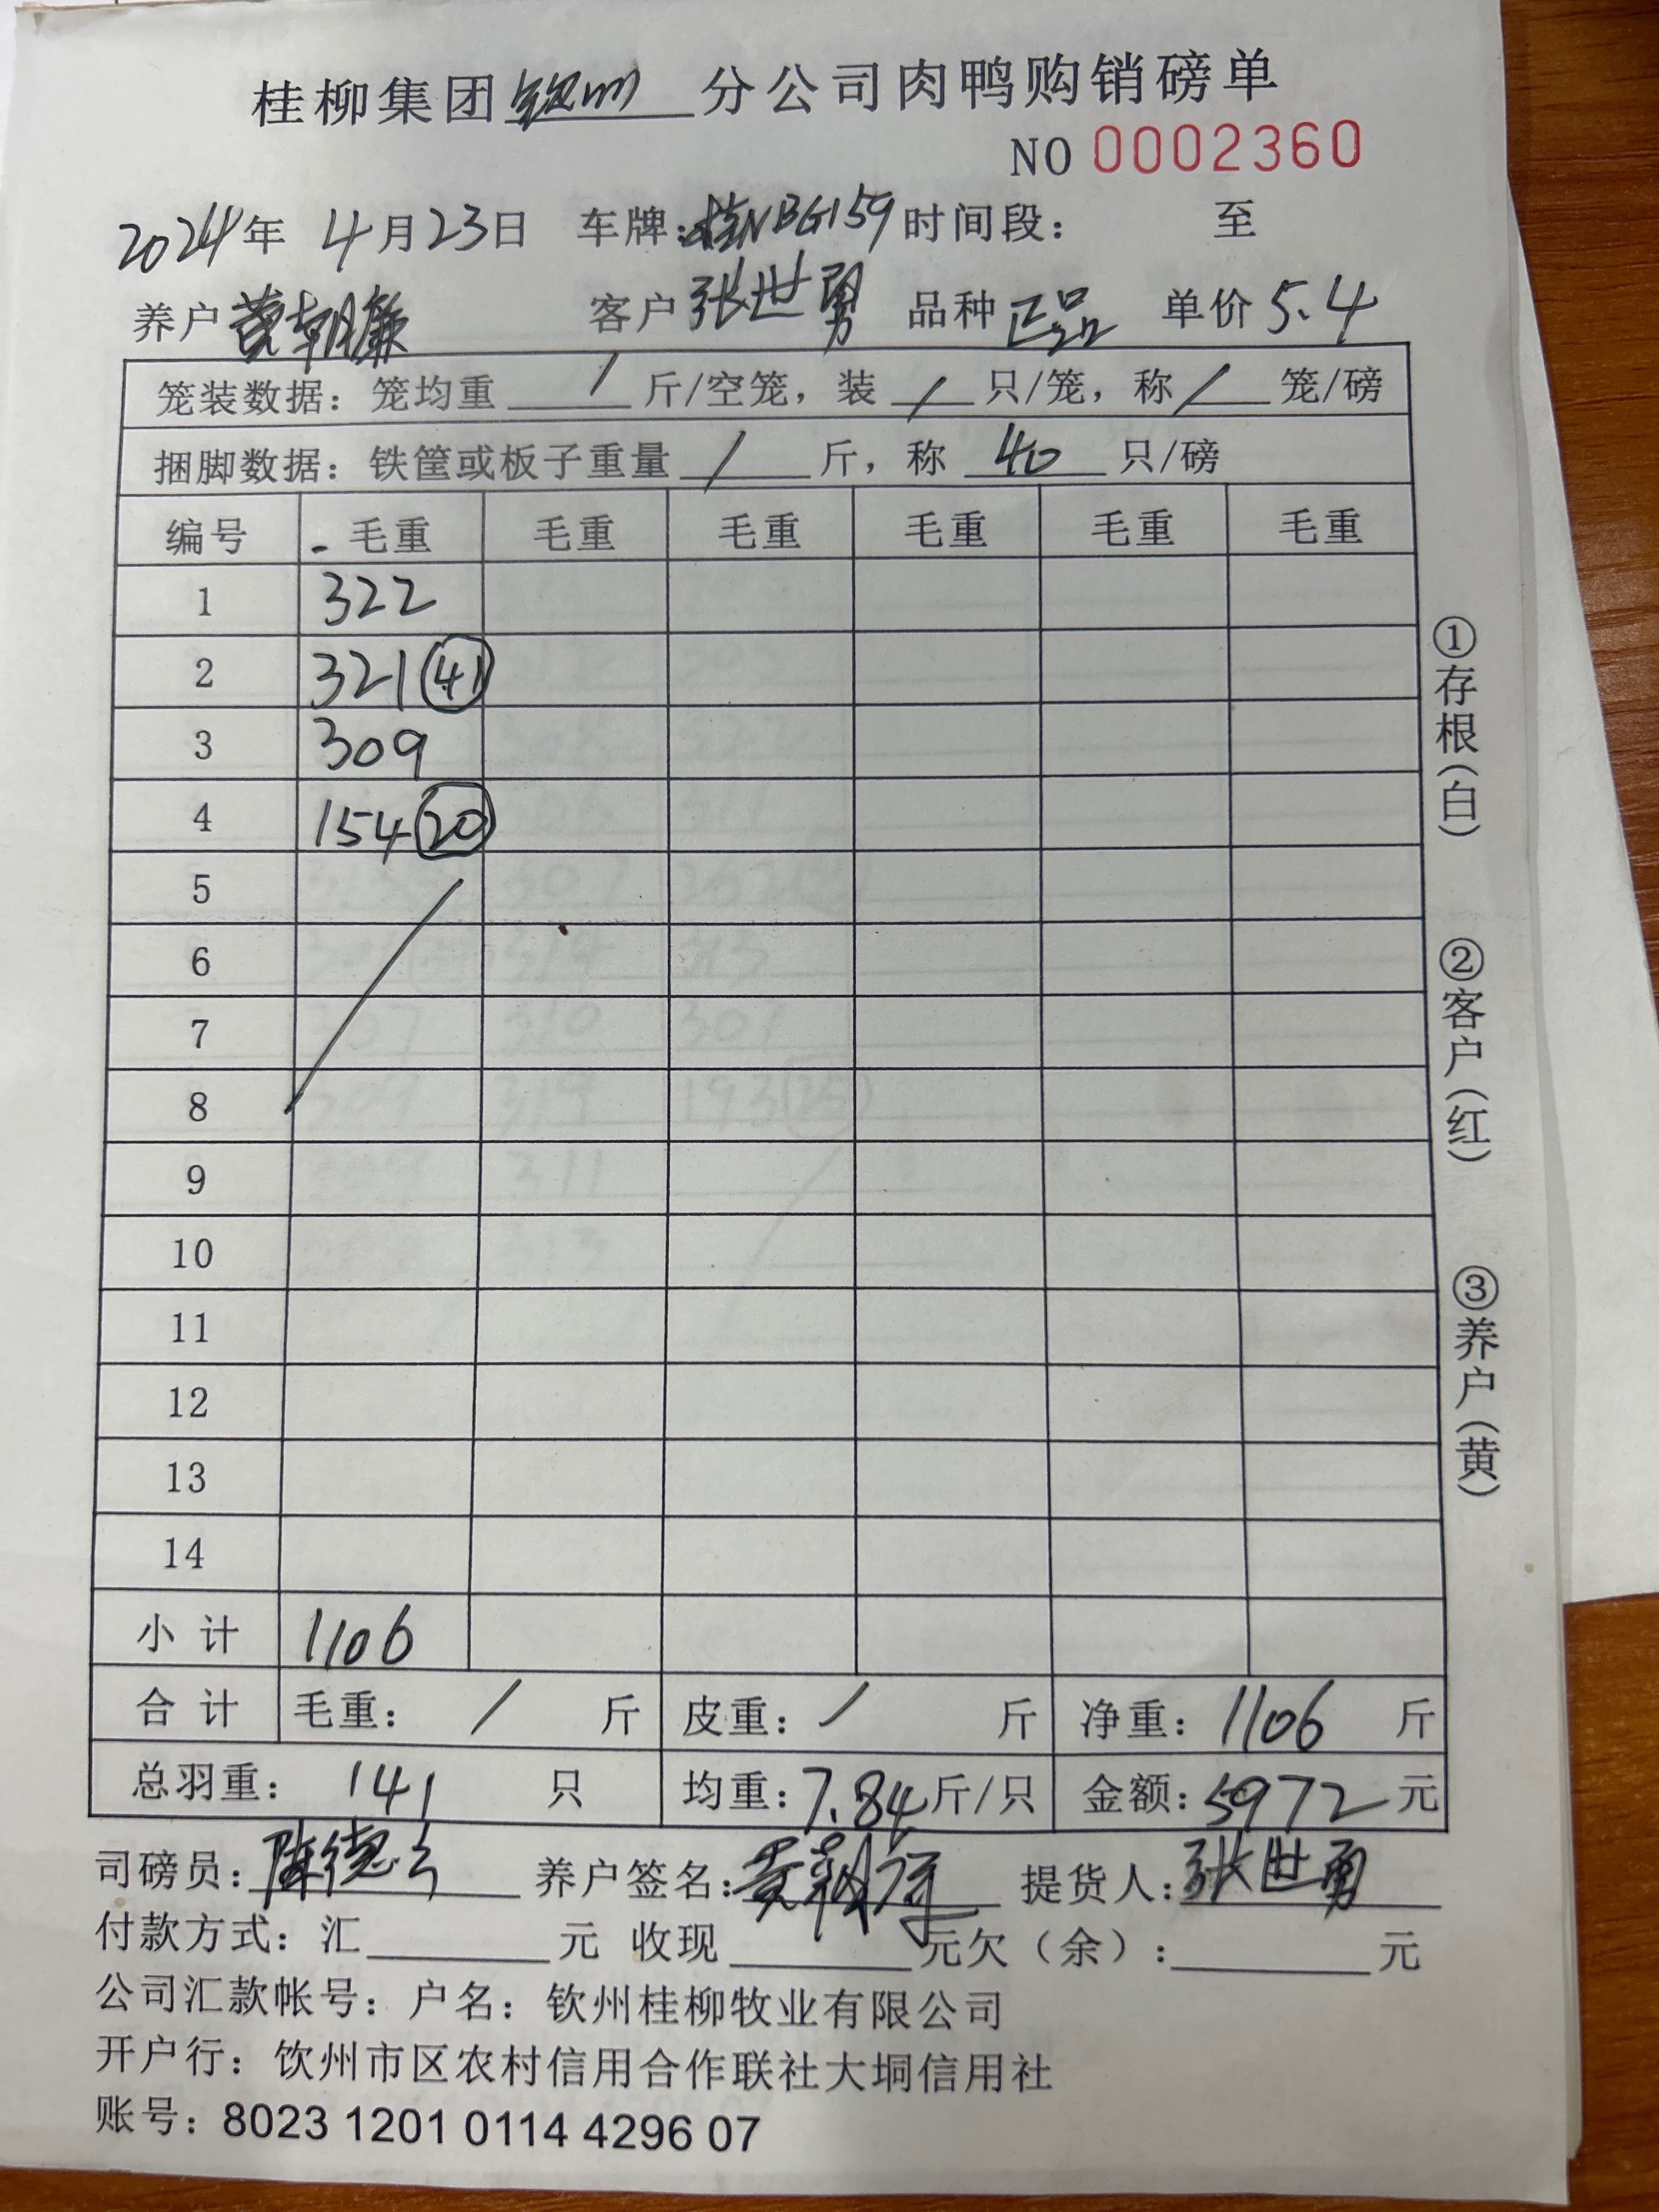 桂柳集团钦州分公司肉鸭购销磅单
NO 0002360
2024年 4月23日 车牌：桂NBG159 时间段： 至
养户 黄朝廉 客户 张世勇 品种 正品 单价 5.4
笼装数据：笼均重 / 斤/空笼，装 / 只/笼，称 / 笼/磅
捆脚数据：铁筐或板子重量 / 斤，称 40 只/磅
编号 毛重 毛重 毛重 毛重 毛重 毛重
1 322
2 321 (41)
3 309
4 154 (20)
5
6
7
8
9
10
11
12
13
14
小计 1106
合计 毛重： / 斤 皮重： / 斤 净重：1106 斤
总羽重： 141 只 均重：7.84斤/只 金额：5972元
①存根（白）
②客户（红）
③养户（黄）
司磅员：陈德 养户签名：黄朝 提货人：张世勇
付款方式：汇 元 收现 元欠（余）： 元
公司汇款帐号：户名：钦州桂柳牧业有限公司
开户行：钦州市区农村信用合作联社大垌信用社
账号：8023 1201 0114 4296 07